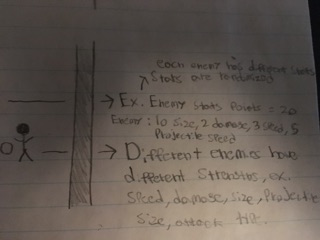 each enemy has different stats
Stats are randomized
Ex. Enemy Stats Points = 20
Enemy: 10 size, 2 damage, 3 speed, 5
Projectile speed
Different enemies have
different Strengths, ex.
Speed, damage, size, Projectile
size, attack